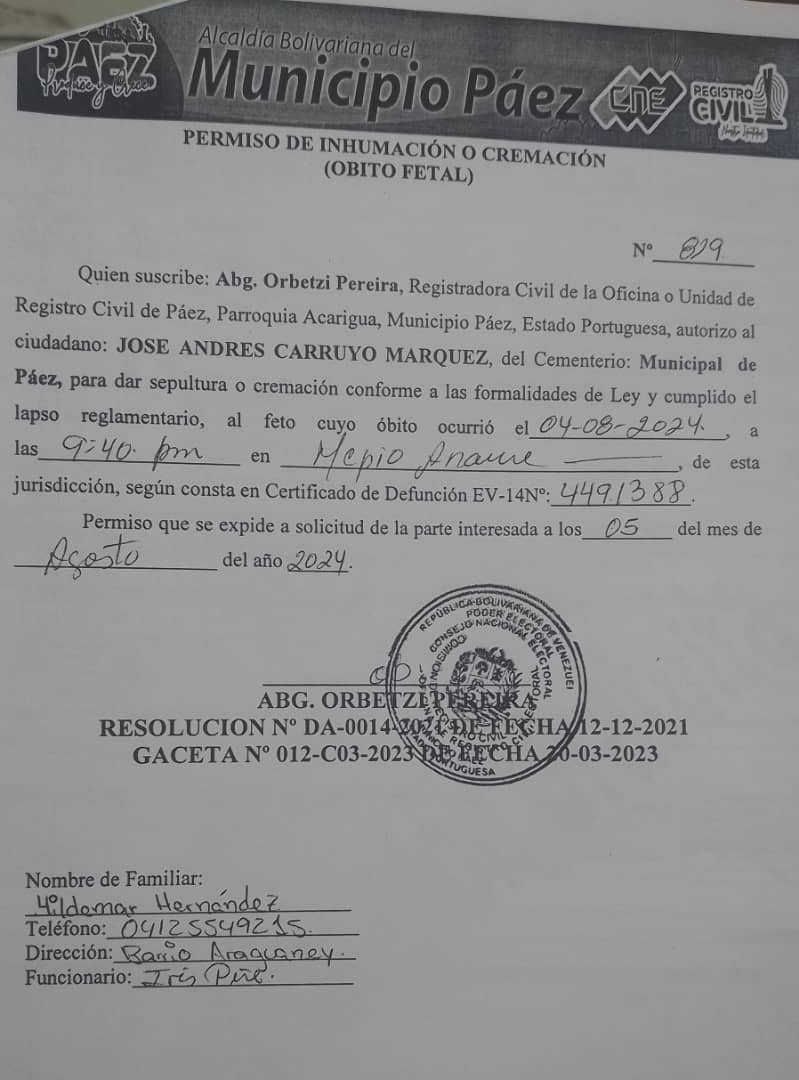 PÁEZ
Alcaldía Bolivariana del
Municipio Páez
CNE
REGISTRO
CIVIL
PERMISO DE INHUMACIÓN O CREMACIÓN
(OBITO FETAL)
Nº 819
Quien suscribe: Abg. Orbetzi Pereira, Registradora Civil de la Oficina o Unidad de
Registro Civil de Páez, Parroquia Acarigua, Municipio Páez, Estado Portuguesa, autorizo al
ciudadano: JOSE ANDRES CARRUYO MARQUEZ, del Cementerio: Municipal de
Páez, para dar sepultura o cremación conforme a las formalidades de Ley y cumplido el
lapso reglamentario, al feto cuyo óbito ocurrió el 04-08-2024. , a
las 9:40. pm en Mcpio Araure , de esta
jurisdicción, según consta en Certificado de Defunción EV-14Nº: 4491388.
Permiso que se expide a solicitud de la parte interesada a los 05 del mes de
Agosto del año 2024.
REPÚBLICA BOLIVARIANA DE VENEZUELA
PODER ELECTORAL
CONSEJO NACIONAL ELECTORAL
ABG. ORBETZI PEREIRA
RESOLUCION Nº DA-0014-2021 DE FECHA 12-12-2021
GACETA Nº 012-C03-2023 DE FECHA 20-03-2023
Nombre de Familiar:
Hildemar Hernández
Teléfono: 04125549215.
Dirección: Barrio Araguaney.
Funcionario: Iris Piñe.